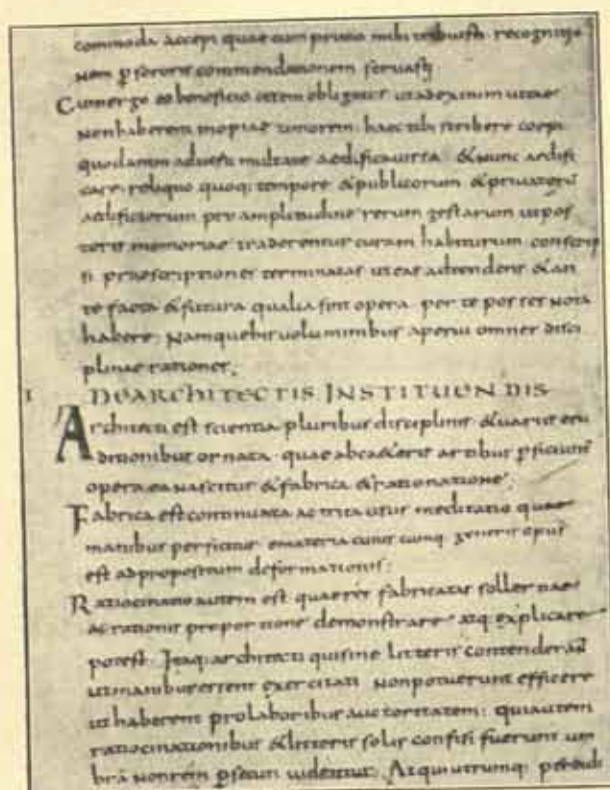 commoda accepi quae cum primo mihi tribuisti recognitio
nem ꝑ sororis commendationem servasti
Cum ergo eo beneficio essem obligatus ut ad exitum vitae
non haberem inopiae timorem haec tibi scribere coepi
quod animadverti multa te aedificavisse & nunc aedifi
care reliquo quoq; tempore & publicorum & privatorū
aedificiorum pro amplitudine rerum gestarum ut pos
teris memoriae traderentur curam habiturum conscrip
si praescriptiones terminatas ut eas adtendens & an
te facta & futura qualia sint opera per te posses nota
habere Namque his voluminibus aperui omnes disci
plinae rationes
I DE ARCHITECTIS INSTITUENDIS
Architecti est scientia pluribus disciplinis & variis eru
ditionibus ornata quae ab cae&eris artibus ꝑficiunt
opera ea nascitur & fabrica & rationatione
Fabrica est continuata ac trita usus meditatio quae
manibus perficitur e materia cuius cumq; generis opus
est ad propositum deformationis
Ratiocinatio autem est quae res fabricatas sollertiae
ac rationis proportione demonstrare atq; explicare
potest Itaq; architecti qui sine litteris contenderant
ut manibus essent exercitati Non potuerunt efficere
ut haberent pro laboribus auctoritatem qui autem
ratiocinationibus & litteris solis confisi fuerunt um
brā non rem ꝑsecuti videntur At qui utrumq; perdidi